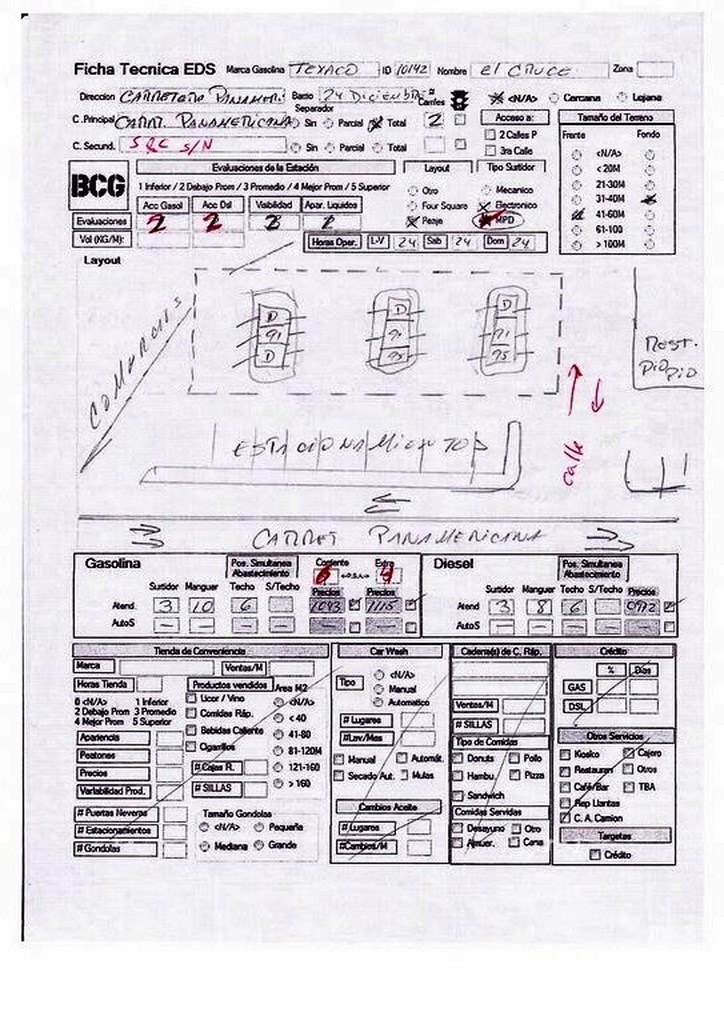 Ficha Tecnica EDS Marca Gasolina TEXACO ID 10142 Nombre El CRUCE Zona
Direccion CARRETERA PANAMERI. Barrio 24 DICIEMBRE # Carriles <N/A> Cercana Lejana
Separador
C .Principal CARRT. PANAMERICANA Sin Parcial Total 2 Acceso a: Tamaño del Terreno
C. Secund. S/N Sin Parcial Total 2 Calles P Frente Fondo
3ra Calle <N/A>
< 20M
21-30M
31-40M
41-60M
61-100
> 100M
BCG Evaluaciones de la Estación Layout Tipo Surtidor
1 Inferior / 2 Debajo Prom / 3 Promedio / 4 Mejor Prom / 5 Superior Otro Mecanico
Acc Gasol Acc Dsl Visibilidad Apar. Liquidos Four Square Electronico
Evaluaciones 2 2 Peaje MPD
Vol (KG/M): Horas Oper. L-V 24 Sab 24 Dom 24
Layout
D D D
91 91 91
D 95 95
Rest.
Pio Pio
ESTACIONAMIENTO
calle
CARRET PANAMERICANA
Gasolina Pos. Simultanea Abastecimiento Corriente Extra Diesel Pos. Simultanea Abastecimiento
Surtidor Manguer Techo S/Techo Precios Precios Surtidor Manguer Techo S/Techo Precios
Atend. 3 10 6 1093 1115 Atend. 3 8 6 0972
AutoS — — — — — AutoS — — — —
Tienda de Conveniencia Car Wash Cadena(s) de C. Ráp. Crédito
Marca Ventas/M <N/A> % Dias
Horas Tienda Productos vendidos Area M2 Tipo Manual GAS
0 <N/A> 1 Inferior Licor / Vino <N/A> Automatico Ventas/M DSL
2 Debajo Prom 3 Promedio Comidas Ráp. < 40 # Lugares # SILLAS
4 Mejor Prom 5 Superior Bebidas Caliente 41-80 #Lav/Mes Tipo de Comidas Otros Servicios
Apariencia Cigarrillos 81-120M Manual Automát. Donuts Pollo Kiosko Cajero
Peatones # Cajas R. 121-160 Secado Aut. Mulas Hambu Pizza Restauran Otros
Precios # SILLAS > 160 Sandwich Café/Bar TBA
Variabilidad Prod. Cambios Aceite Comidas Servidas Rep Llantas
# Puertas Neveras Tamaño Gondolas # Lugares Desayuno Otro C. A. Camion
# Estacionamientos <N/A> Pequeña #Cambios/M Almuer. Cena Targetas
# Gondolas Mediana Grande Crédito